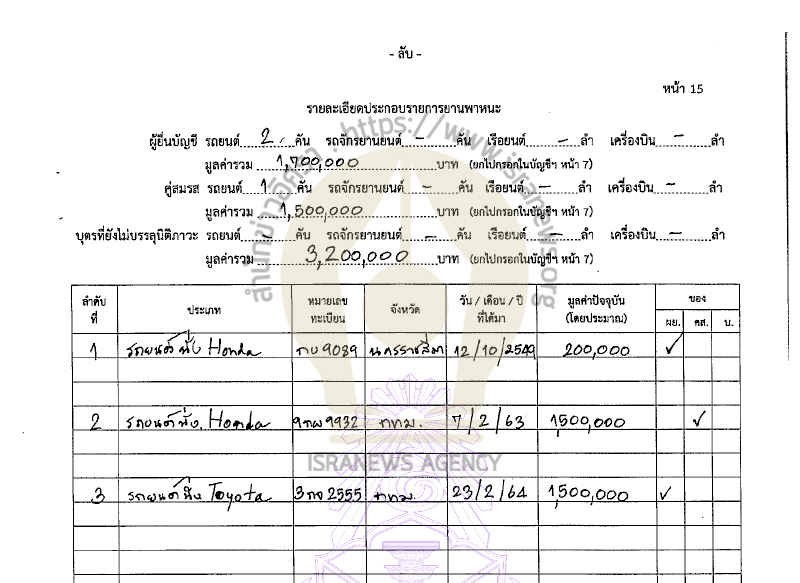 - ลับ -
หน้า 15
รายละเอียดประกอบรายการยานพาหนะ
ผู้ยื่นบัญชี รถยนต์ 2 คัน รถจักรยานยนต์ - คัน เรือยนต์ - ลำ เครื่องบิน - ลำ
มูลค่ารวม 1,700,000 บาท (ยกไปกรอกในบัญชีฯ หน้า 7)
คู่สมรส รถยนต์ 1 คัน รถจักรยานยนต์ - คัน เรือยนต์ - ลำ เครื่องบิน - ลำ
มูลค่ารวม 1,500,000 บาท (ยกไปกรอกในบัญชีฯ หน้า 7)
บุตรที่ยังไม่บรรลุนิติภาวะ รถยนต์ - คัน รถจักรยานยนต์ - คัน เรือยนต์ - ลำ เครื่องบิน - ลำ
มูลค่ารวม 3,200,000 บาท (ยกไปกรอกในบัญชีฯ หน้า 7)
ลำดับที่ ประเภท หมายเลขทะเบียน จังหวัด วัน / เดือน / ปี ที่ได้มา มูลค่าปัจจุบัน (โดยประมาณ) ของ
ผย. คส. บ.
1 รถยนต์นั่ง Honda กบ 9089 นครราชสีมา 12/10/2549 200,000 ✓
2 รถยนต์นั่ง Honda 9932 กทม. 7/2/63 1,500,000 ✓
3 รถยนต์นั่ง Toyota 3กจ 2555 กทม. 23/2/64 1,500,000 ✓
สำนักข่าวอิศรา https://www.isranews.org
ISRANEWS AGENCY